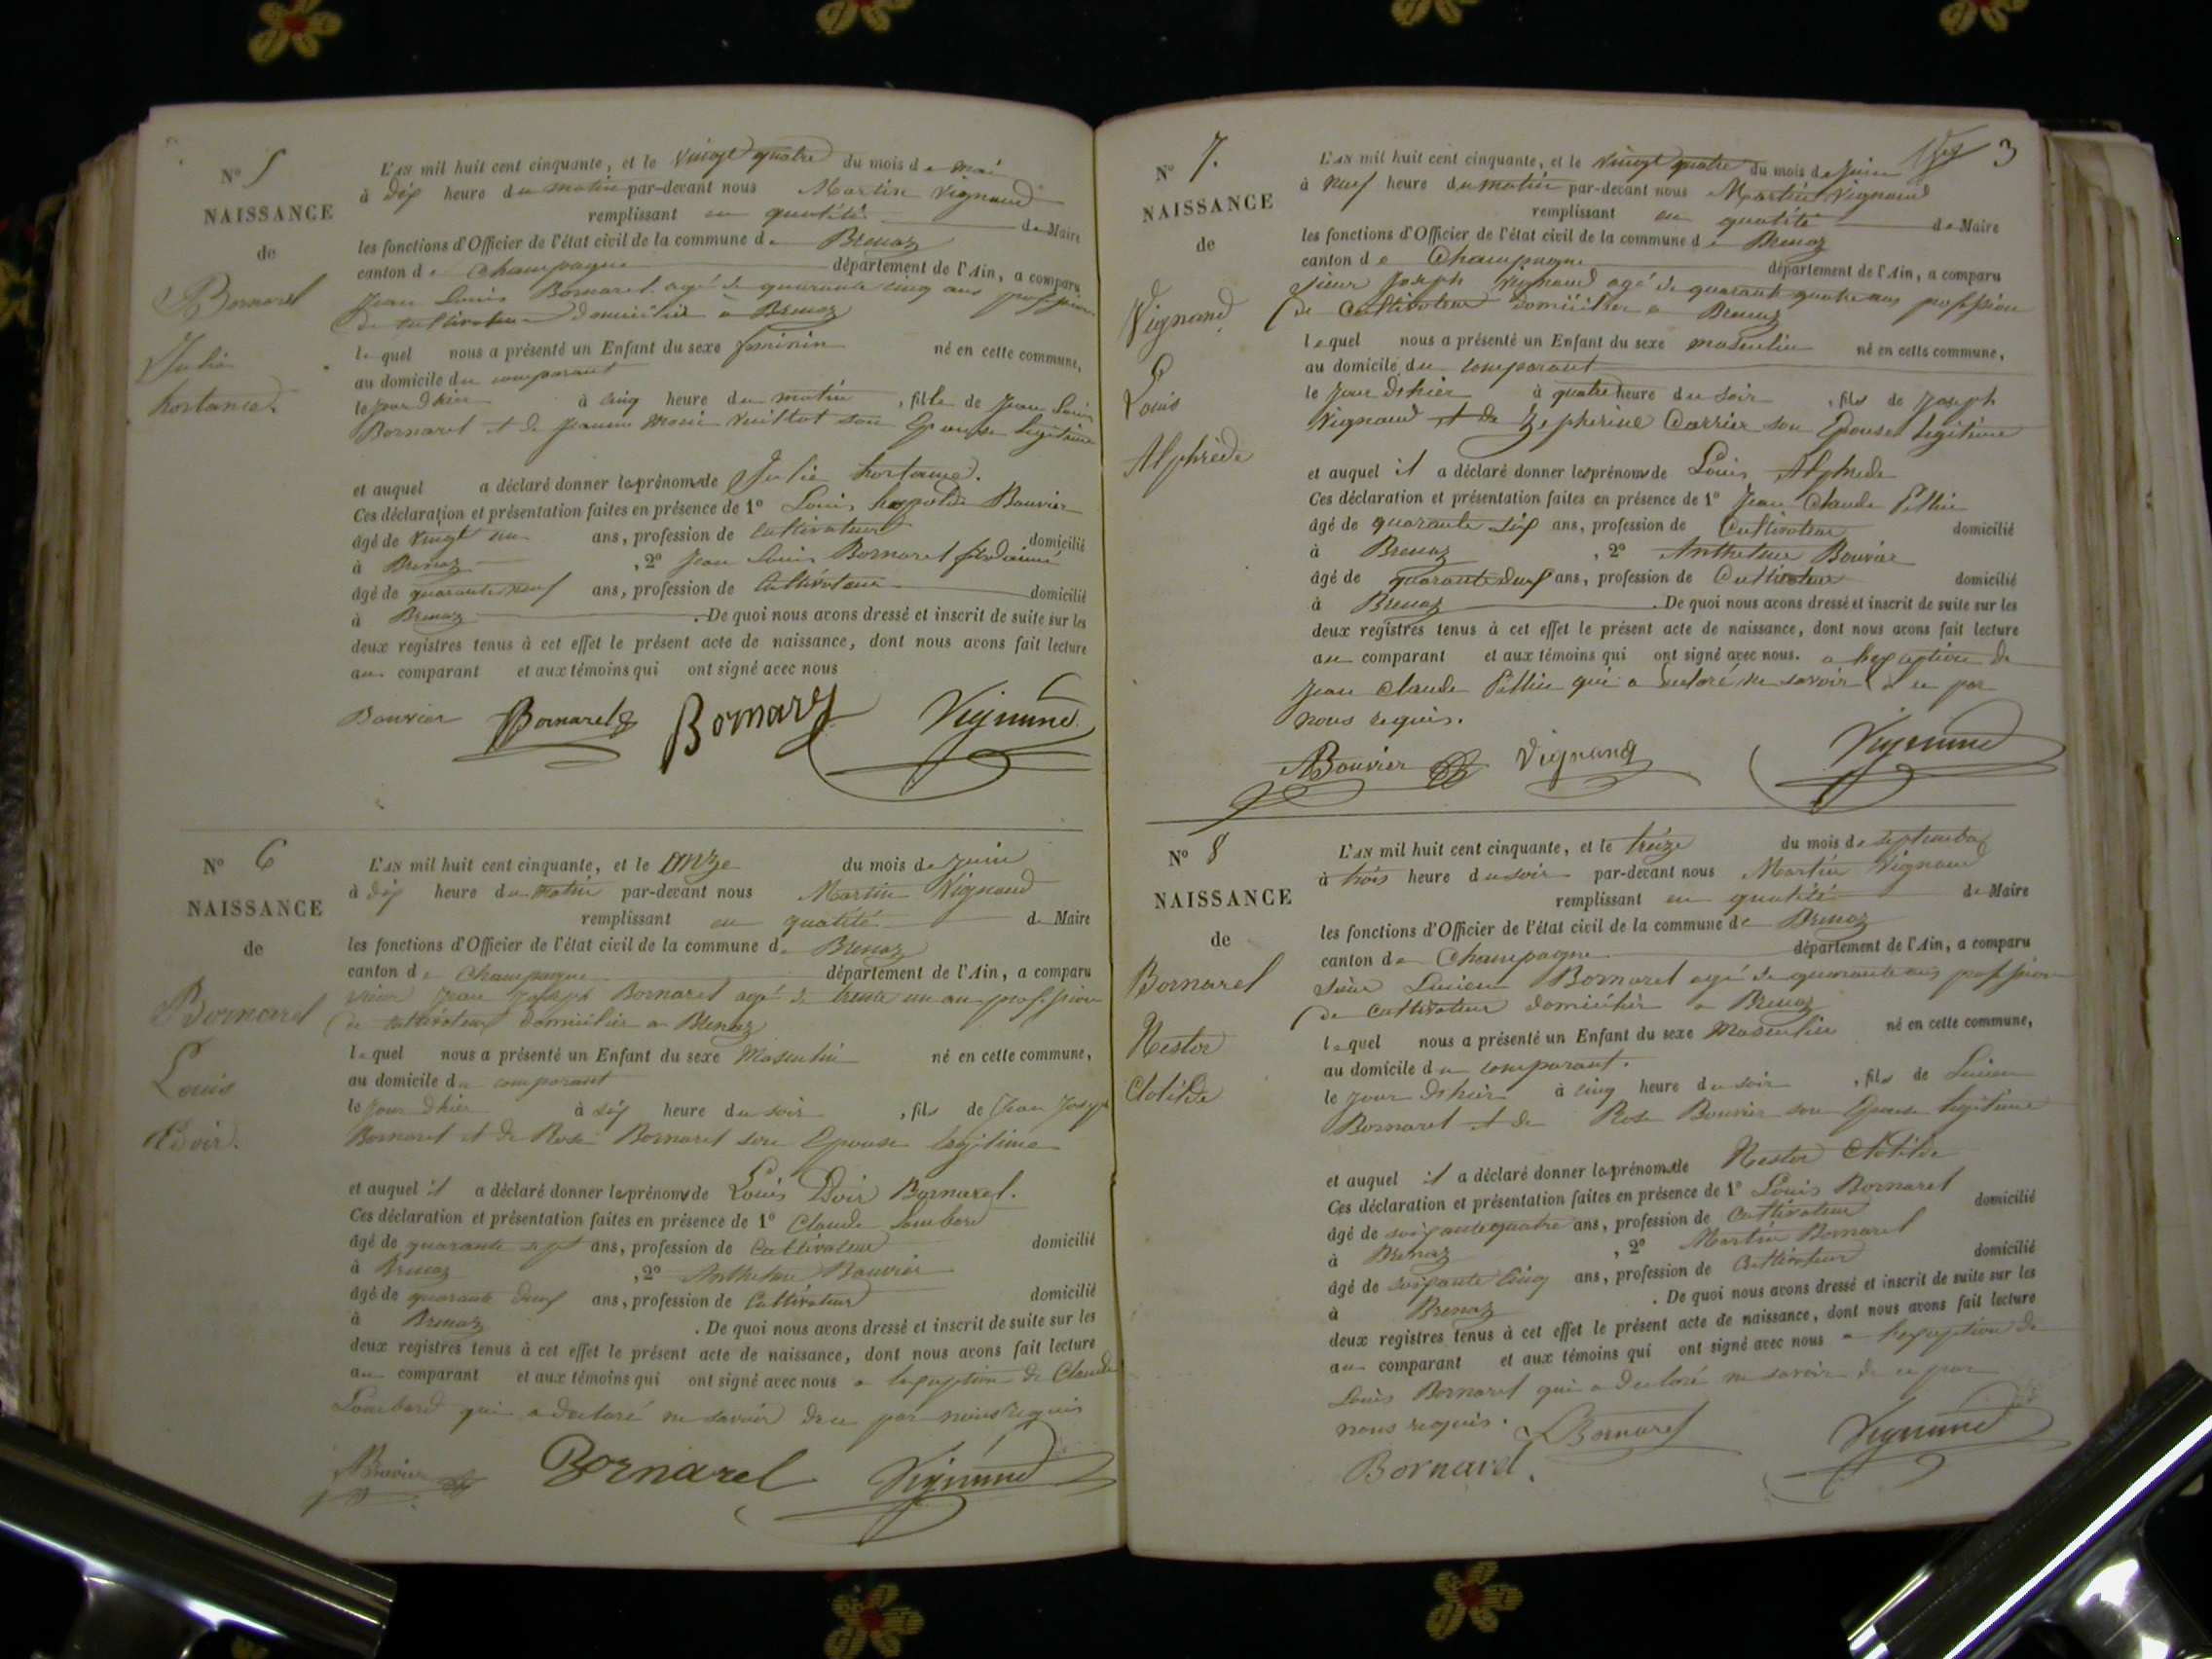 N° 5
NAISSANCE
de
Bornarel
Julie
hortance.
L'AN mil huit cent cinquante, et le vingt quatre du mois de mai
à dix heure du matin par-devant nous Martin Vignand
remplissant en quatité de Maire
les fonctions d'Officier de l'état civil de la commune de Brenaz
canton de Champagne département de l'Ain, a comparu
Jean Louis Bornarel agé de quarante cinq ans profession
de cultivateur domicilié à Brenaz
lequel nous a présenté un Enfant du sexe feminin né en cette commune,
au domicile du comparant
le jour dhier à cinq heure du matin, fille de Jean Louis
Bornarel et de Jeanne Marie Vuillot son Epouse legitime
et auquel a déclaré donner les prénoms de Julie hortance.
Ces déclaration et présentation faites en présence de 1° Louis Bouvier
âgé de vingt un ans, profession de cultivateur domicilié
à Brenaz, 2° Jean Louis Bornarel
âgé de quarante neuf ans, profession de Cultivateur domicilié
à Brenaz. De quoi nous avons dressé et inscrit de suite sur les
deux registres tenus à cet effet le présent acte de naissance, dont nous avons fait lecture
au comparant et aux témoins qui ont signé avec nous
Bouvier Bornarel Bornarel Vignand
N° 6
NAISSANCE
de
Bornarel
Louis
Edoir.
L'AN mil huit cent cinquante, et le onze du mois de juin
à dix heure du matin par-devant nous Martin Vignand
remplissant en quatité de Maire
les fonctions d'Officier de l'état civil de la commune de Brenaz
canton de Champagne département de l'Ain, a comparu
sieur Jean Joseph Bornarel agé de trente un an profession
de cultivateur domicilier a Brenaz
lequel nous a présenté un Enfant du sexe Masculin né en cette commune,
au domicile du comparant
le jour dhier à six heure du soir, fils de Jean Joseph
Bornarel et de Rose Bornarel son Epouse legitime
et auquel il a déclaré donner les prénoms de Louis Edoir Bornarel.
Ces déclaration et présentation faites en présence de 1° Claude Lombard
âgé de quarante sept ans, profession de Cultivateur domicilié
à Brenaz, 2° Anthelme Bouvier
âgé de quarante deux ans, profession de Cultivateur domicilié
à Brenaz. De quoi nous avons dressé et inscrit de suite sur les
deux registres tenus à cet effet le présent acte de naissance, dont nous avons fait lecture
au comparant et aux témoins qui ont signé avec nous a lexception de Claude
Lombard qui a déclaré ne savoir de ce par nous requis
Bouvier Bornarel Vignand
3
N° 7.
NAISSANCE
de
Vignand
Louis
Alphrède
L'AN mil huit cent cinquante, et le vingt quatre du mois de Juin
à neuf heure du matin par-devant nous Martin Vignand
remplissant en quatité de Maire
les fonctions d'Officier de l'état civil de la commune de Brenaz
canton de Champagne département de l'Ain, a comparu
sieur Joseph Vignand agé de quarante quatre ans profession
de Cultivateur domicilier a Brenaz
lequel nous a présenté un Enfant du sexe masculin né en cette commune,
au domicile du comparant
le jour dhier à quatre heure du soir, fils de Joseph
Vignand et de Zepherine Carrier son Epouse legitime
et auquel il a déclaré donner les prénoms de Louis Alphrede
Ces déclaration et présentation faites en présence de 1° Jean Claude
âgé de quarante six ans, profession de Cultivateur domicilié
à Brenaz, 2° Anthelme Bouvier
âgé de quarante deux ans, profession de Cultivateur domicilié
à Brenaz. De quoi nous avons dressé et inscrit de suite sur les
deux registres tenus à cet effet le présent acte de naissance, dont nous avons fait lecture
au comparant et aux témoins qui ont signé avec nous. a lexception de
Jean Claude qui a declaré ne savoir de ce par
nous requis.
Bouvier Vignand Vignand
N° 8
NAISSANCE
de
Bornarel
Nestor
Clotilde
L'AN mil huit cent cinquante, et le treize du mois de septembre
à trois heure du soir par-devant nous Martin Vignand
remplissant en quatité de Maire
les fonctions d'Officier de l'état civil de la commune de Brenaz
canton de Champagne département de l'Ain, a comparu
sieur Lucien Bornarel agé de quarante ans profession
de cultivateur domicilier a Brenaz
lequel nous a présenté un Enfant du sexe Masculin né en cette commune,
au domicile du comparant.
le jour dhier à cinq heure du soir, fils de Lucien
Bornarel et de Rose Bouvier son Epouse legitime
et auquel il a déclaré donner les prénoms de Nestor Clotilde
Ces déclaration et présentation faites en présence de 1° Louis Bornarel
âgé de soixante quatre ans, profession de Cultivateur domicilié
à Brenaz, 2° Martin Bornarel
âgé de soixante cinq ans, profession de Cultivateur domicilié
à Brenaz. De quoi nous avons dressé et inscrit de suite sur les
deux registres tenus à cet effet le présent acte de naissance, dont nous avons fait lecture
au comparant et aux témoins qui ont signé avec nous a lexception de
Louis Bornarel qui a declaré ne savoir de ce par
nous requis. LBornarel Vignand
Bornarel.